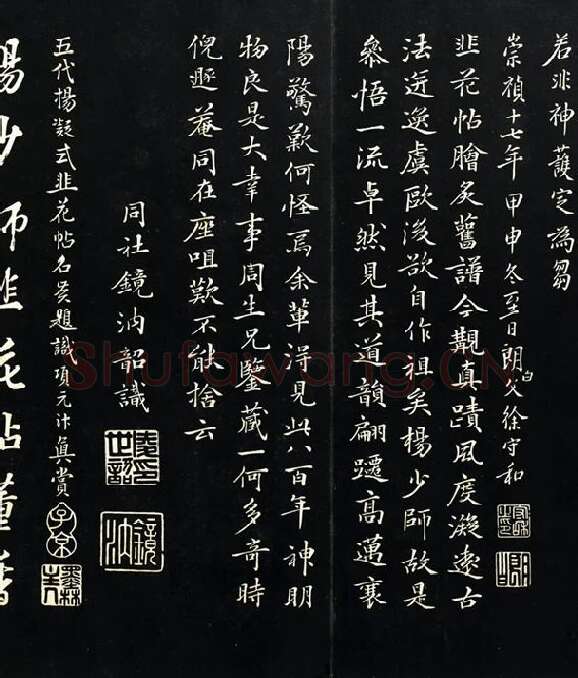 若非神護定為芻
崇禎十七年甲申冬至日朗白父徐守和
韭花帖膾炙舊譜今覩真蹟風度凝遠古
法迸逸虞歐後欲自作祖矣楊少師故是
參悟一流卓然見其道韻翩躚高邁襄
陽驚歎何怪焉余輩得見此八百年神明
物良是大幸事周生兄鑒藏一何多奇時
倪遯菴同在座咀歎不能捨云
同社鏡汭韶識
鏡汭
五代楊凝式韭花帖名賢題識項元汴真賞
子京
墨林
楊少師韭花帖董書
Shufawang.CN